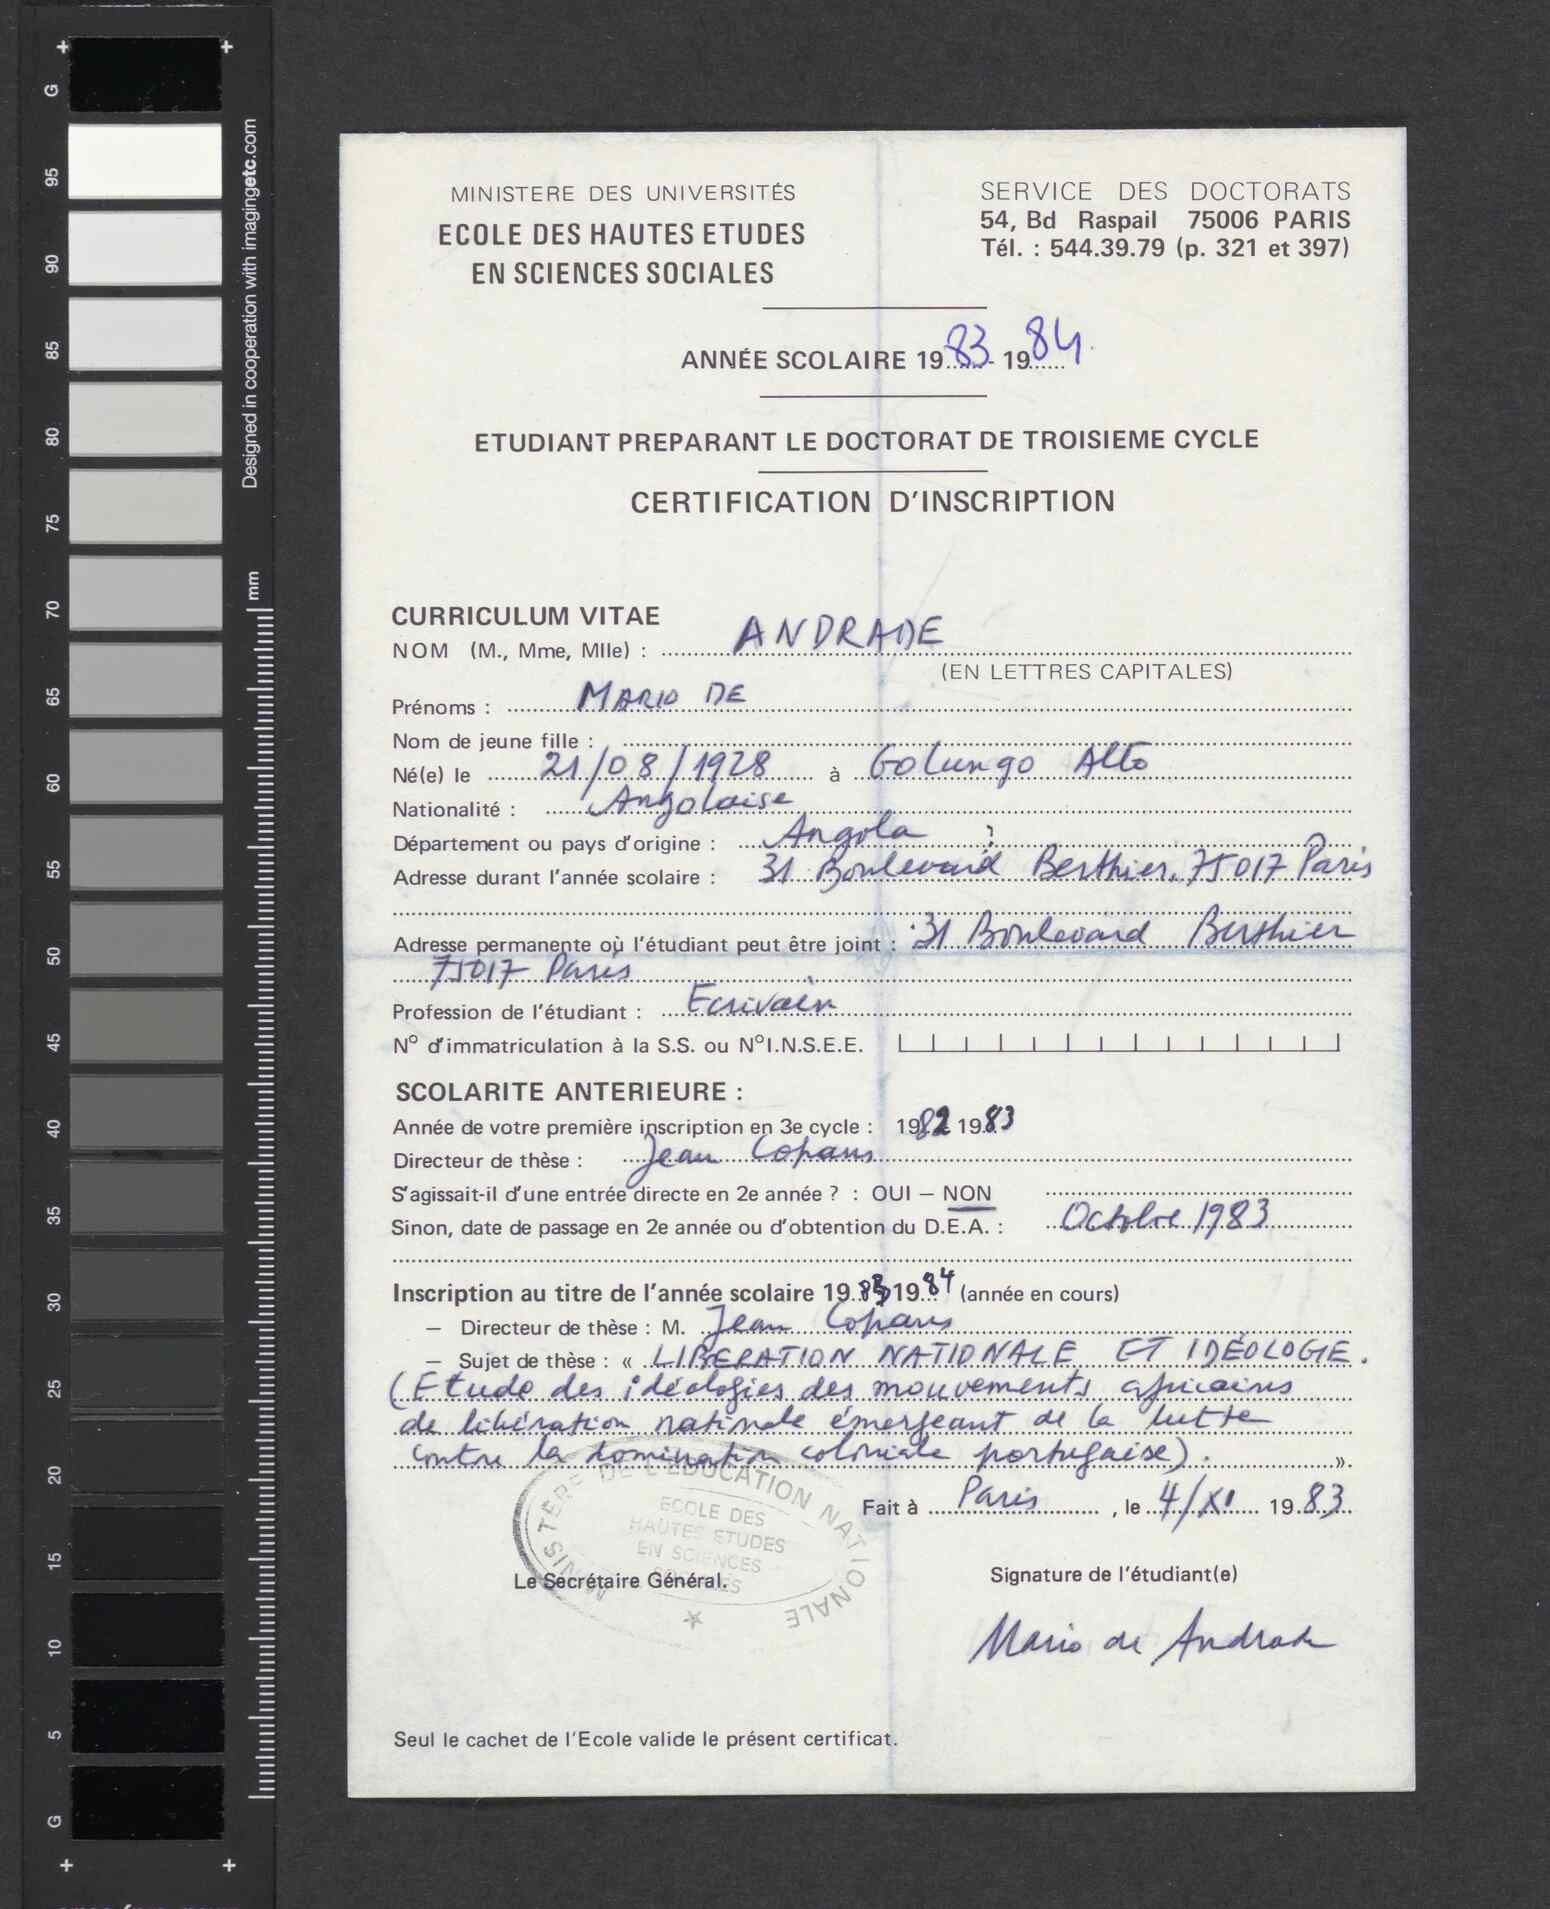 MINISTERE DES UNIVERSITÉS
ECOLE DES HAUTES ETUDES
EN SCIENCES SOCIALES
SERVICE DES DOCTORATS
54, Bd Raspail 75006 PARIS
Tél. : 544.39.79 (p. 321 et 397)
ANNÉE SCOLAIRE 1983 - 1984
ETUDIANT PREPARANT LE DOCTORAT DE TROISIEME CYCLE
CERTIFICATION D'INSCRIPTION
CURRICULUM VITAE
NOM (M., Mme, Mlle) : ANDRADE
(EN LETTRES CAPITALES)
Prénoms : MARIO DE
Nom de jeune fille :
Né(e) le 21/08/1928 à Golungo Alto
Nationalité : Angolaise
Département ou pays d'origine : Angola
Adresse durant l'année scolaire : 31 Boulevard Berthier, 75017 Paris
Adresse permanente où l'étudiant peut être joint : 31 Boulevard Berthier
75017 Paris
Profession de l'étudiant : Ecrivain
N° d'immatriculation à la S.S. ou N°I.N.S.E.E.
SCOLARITE ANTERIEURE :
Année de votre première inscription en 3e cycle : 1982 1983
Directeur de thèse : Jean Copans
S'agissait-il d'une entrée directe en 2e année ? : OUI – NON
Sinon, date de passage en 2e année ou d'obtention du D.E.A. : Octobre 1983
Inscription au titre de l'année scolaire 1983 1984 (année en cours)
– Directeur de thèse : M. Jean Copans
– Sujet de thèse : « LIBERATION NATIONALE ET IDÉOLOGIE.
(Etude des idéologies des mouvements africains
de libération nationale émergeant de la lutte
contre la domination coloniale portugaise). ».
Fait à Paris , le 4/XI 1983
MINISTERE DE L'EDUCATION NATIONALE
ECOLE DES
HAUTES ETUDES
EN SCIENCES
SOCIALES
Le Secrétaire Général.
Signature de l'étudiant(e)
Mario de Andrade
Seul le cachet de l'Ecole valide le présent certificat.
Designed in cooperation with imagingetc.com
mm
G
95
90
85
80
75
70
65
60
55
50
45
40
35
30
25
20
15
10
5
G